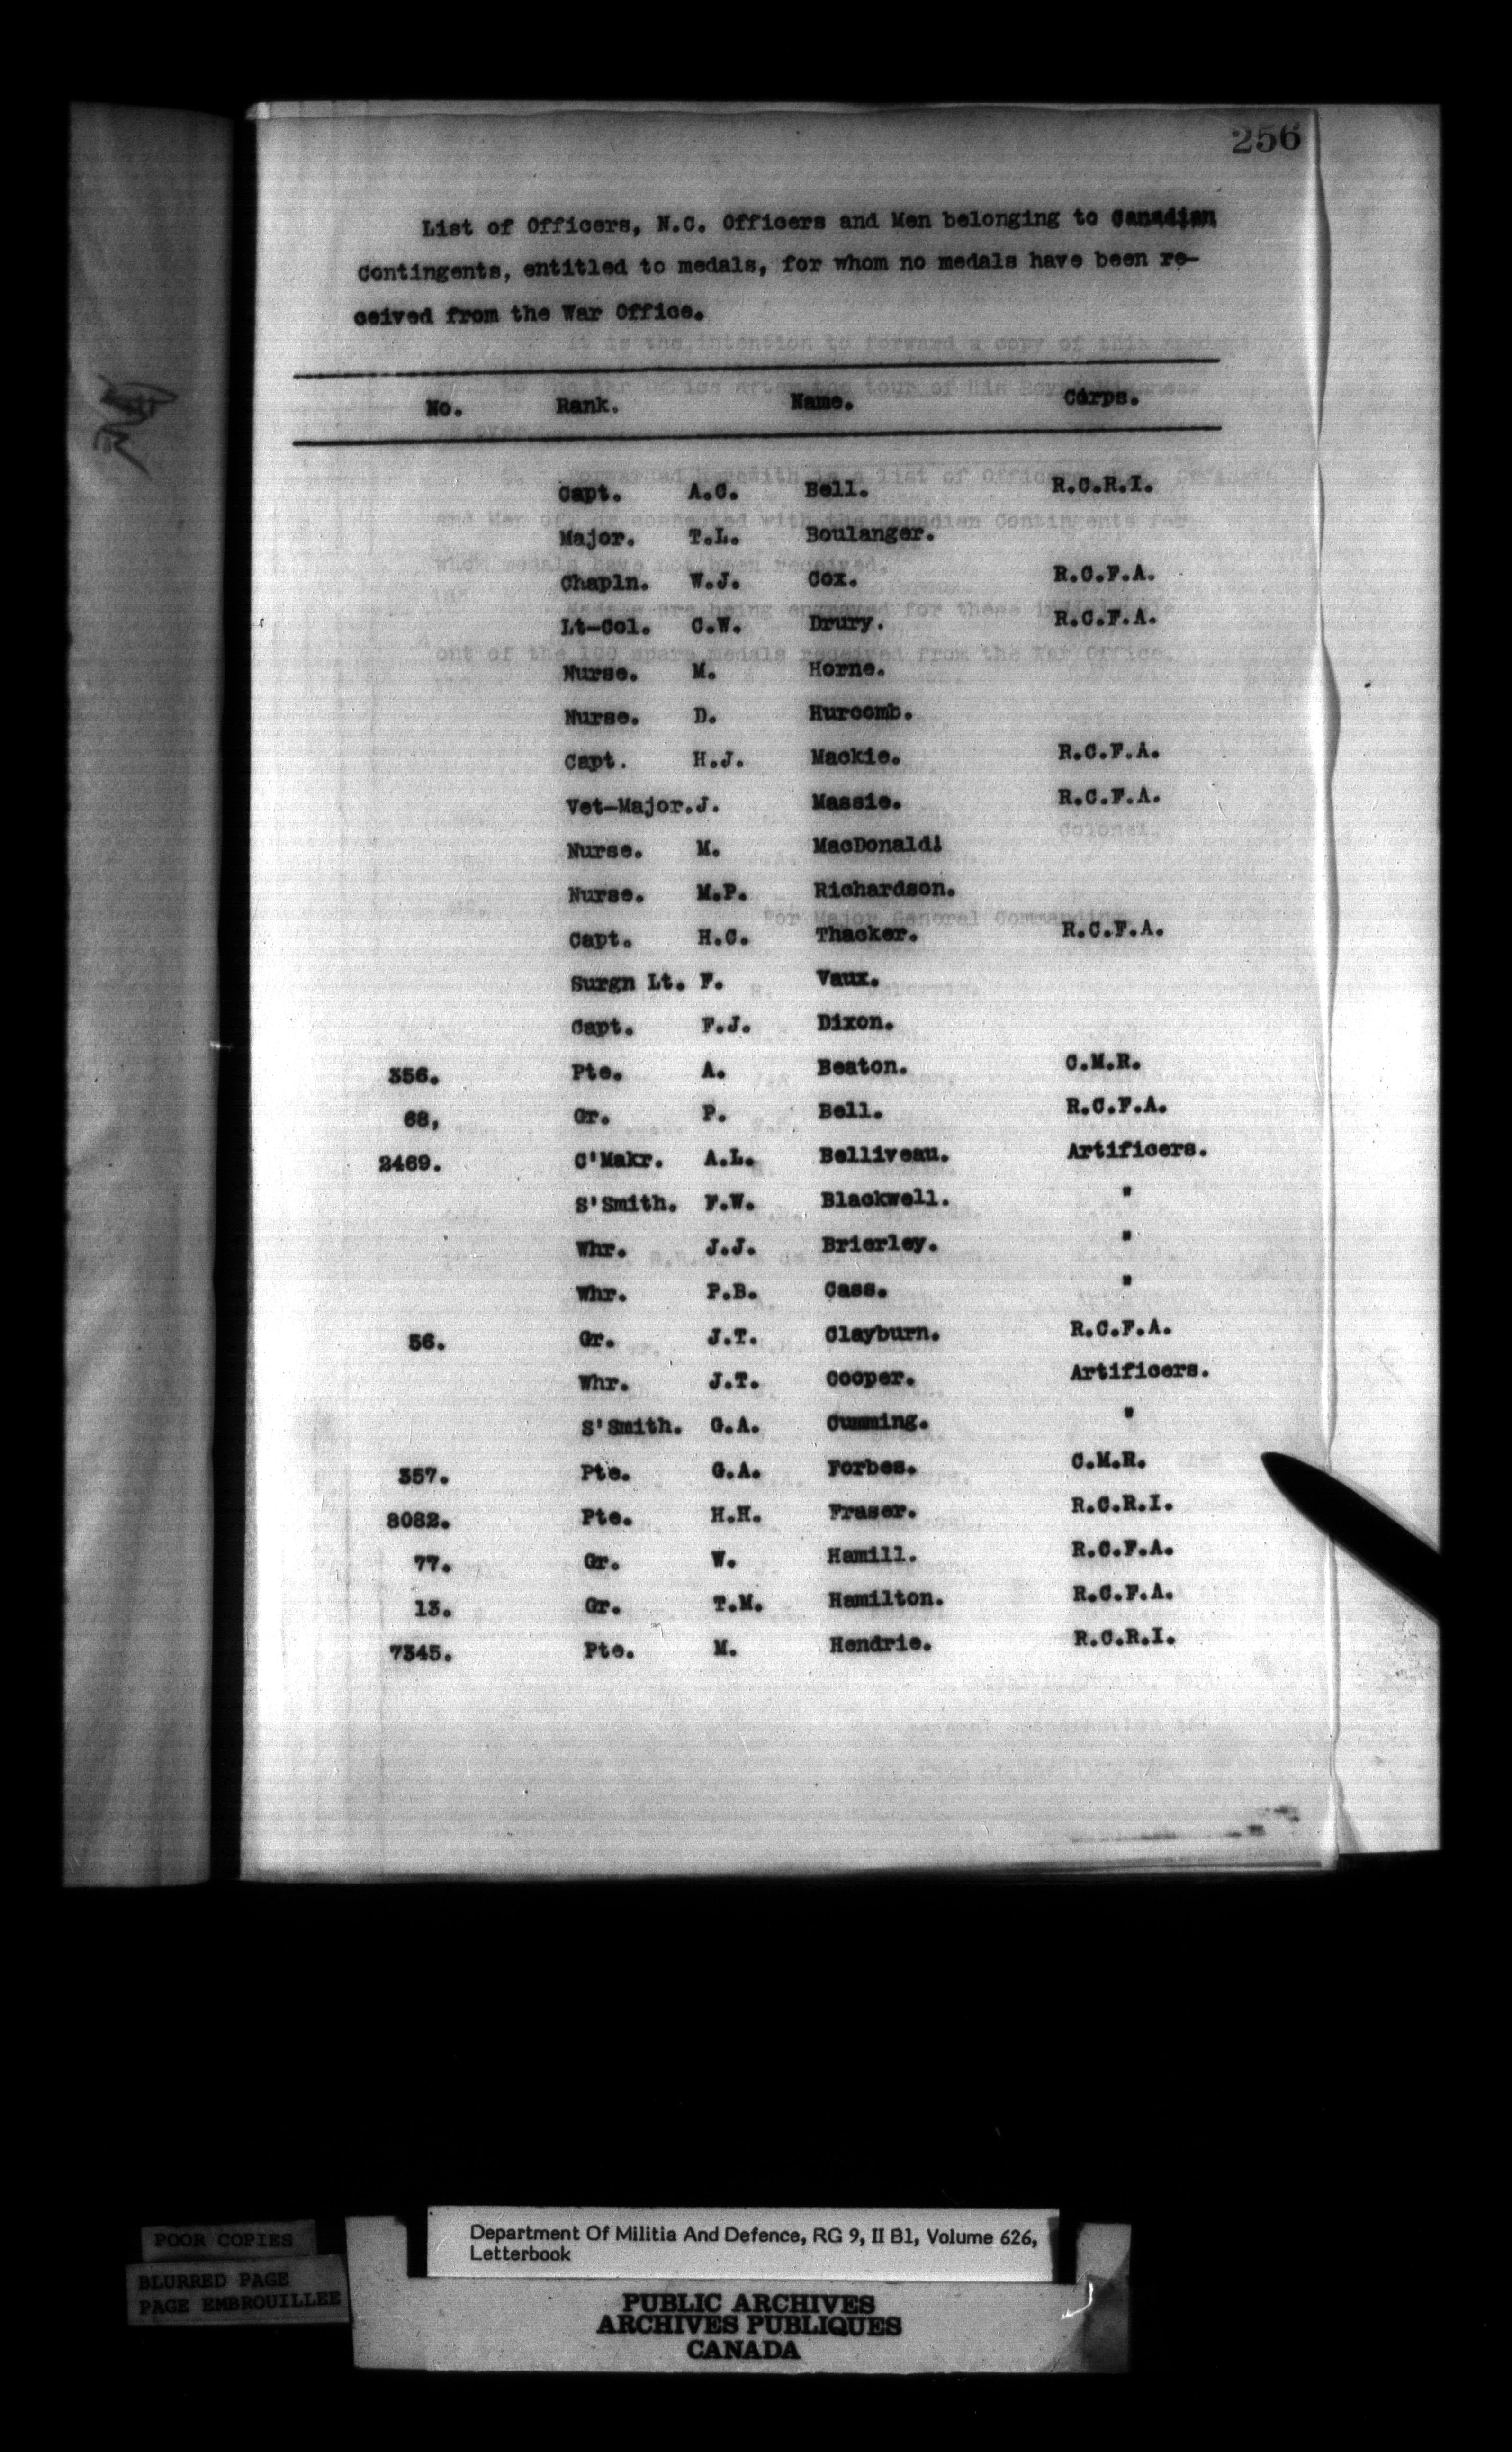 256
List of Officers, N.C. Officers and Men belonging to Canadian
Contingents, entitled to medals, for whom no medals have been re-
ceived from the War Office.
No. Rank. Name. Corps.
Capt. A.C. Bell. R.C.R.I.
Major. T.L. Boulanger.
Chapln. W.J. Cox. R.C.F.A.
Lt-Col. C.W. Drury. R.C.F.A.
Nurse. M. Horne.
Nurse. D. Hurcomb.
Capt. H.J. Mackie. R.C.F.A.
Vet-Major. J. Massie. R.C.F.A.
Nurse. M. MacDonald!
Nurse. M.P. Richardson.
Capt. H.C. Thacker. R.C.F.A.
Surgn Lt. F. Vaux.
Capt. F.J. Dixon.
356. Pte. A. Beaton. C.M.R.
68, Gr. P. Bell. R.C.F.A.
2469. C'Makr. A.L. Belliveau. Artificers.
S'Smith. F.W. Blackwell. "
Whr. J.J. Brierley. "
Whr. P.B. Cass. "
56. Gr. J.T. Clayburn. R.C.F.A.
Whr. J.T. Cooper. Artificers.
S'Smith. G.A. Cumming. "
357. Pte. G.A. Forbes. C.M.R.
8082. Pte. H.H. Fraser. R.C.R.I.
77. Gr. W. Hamill. R.C.F.A.
13. Gr. T.M. Hamilton. R.C.F.A.
7345. Pte. M. Hendrie. R.C.R.I.
POOR COPIES
BLURRED PAGE
PAGE EMBROUILLEE
Department Of Militia And Defence, RG 9, II B1, Volume 626,
Letterbook
PUBLIC ARCHIVES
ARCHIVES PUBLIQUES
CANADA